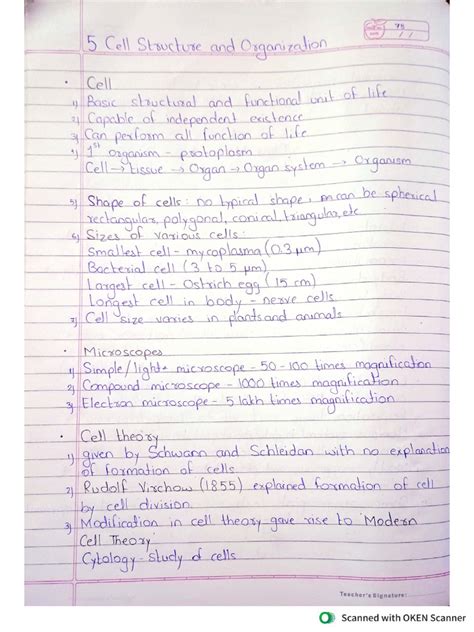 75
/ /
5 Cell Structure and Organization
• Cell
1) Basic structural and functional unit of life
2) Capable of independent existence
3) Can perform all function of life
4) 1st organism - protoplasm
Cell → tissue → Organ → Organ system → Organism
5) Shape of cells : no typical shape, can be spherical
rectangular, polygonal, conical, triangular, etc
6) Sizes of various cells:
Smallest cell - mycoplasma (0.3 μm)
Bacterial cell (3 to 5 μm)
Largest cell - Ostrich egg (15 cm)
Longest cell in body - nerve cells
7) Cell size varies in plants and animals
• Microscopes
1) Simple/light microscope - 50-100 times magnification
2) Compound microscope - 1000 times magnification
3) Electron microscope - 5 lakh times magnification
• Cell theory
1) given by Schwann and Schleidan with no explanation
of formation of cells
2) Rudolf Virchow (1855) explained formation of cell
by cell division.
3) Modification in cell theory gave rise to Modern
Cell Theory.
Cytology - Study of cells
Teacher's Signature:
Scanned with OKEN Scanner